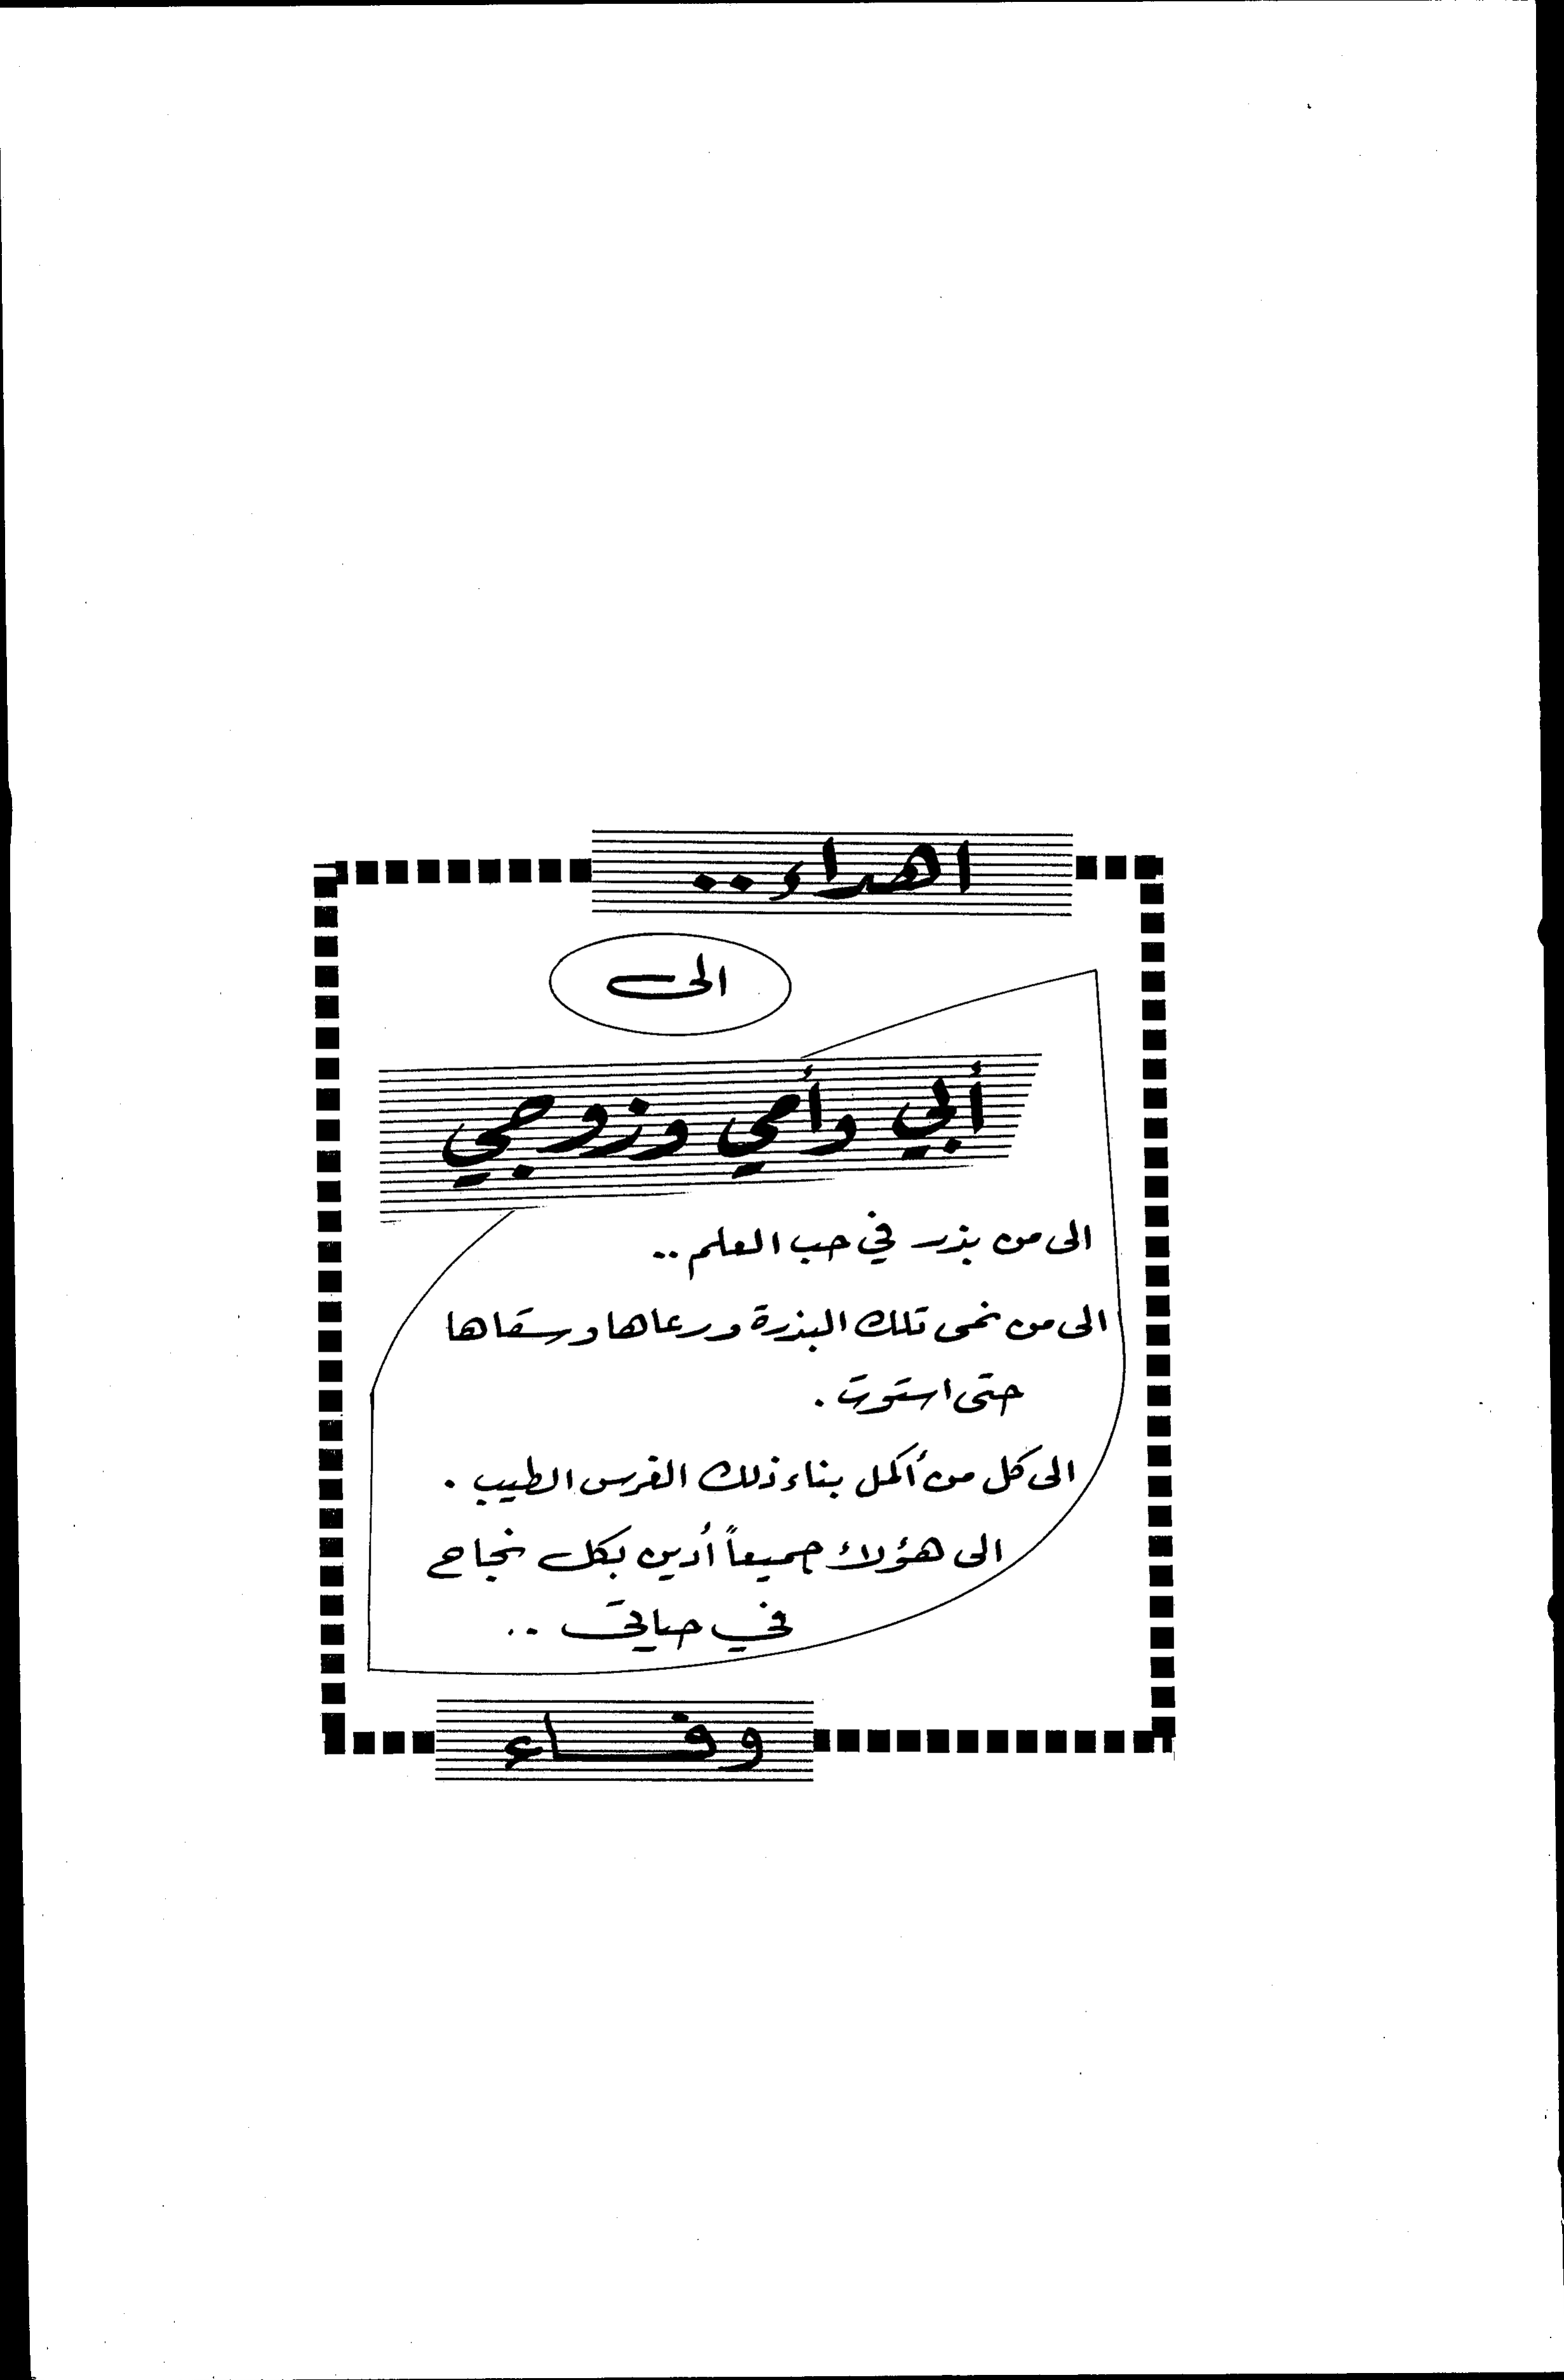 اهداء..
الى
أبي وأمي وزوجي
الى من بذر في حب العلم ..
الى من نمى تلك البذرة ورعاها وسقاها
حتى استوت .
الى كل من أكمل بناء ذلك الغرس الطيب .
الى هؤلاء جميعاً أدين بكل نجاح
في حياتي ..
وفاء